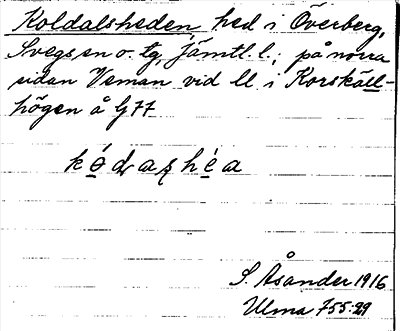 Koldalsheden, hed i Överberg,
Svegs sn o. tg, Jämtl. l.; på norra
sidan Veman vid ll i Korskäll-
högen å G 77
S. Åsander 1916
Ulma 755:29